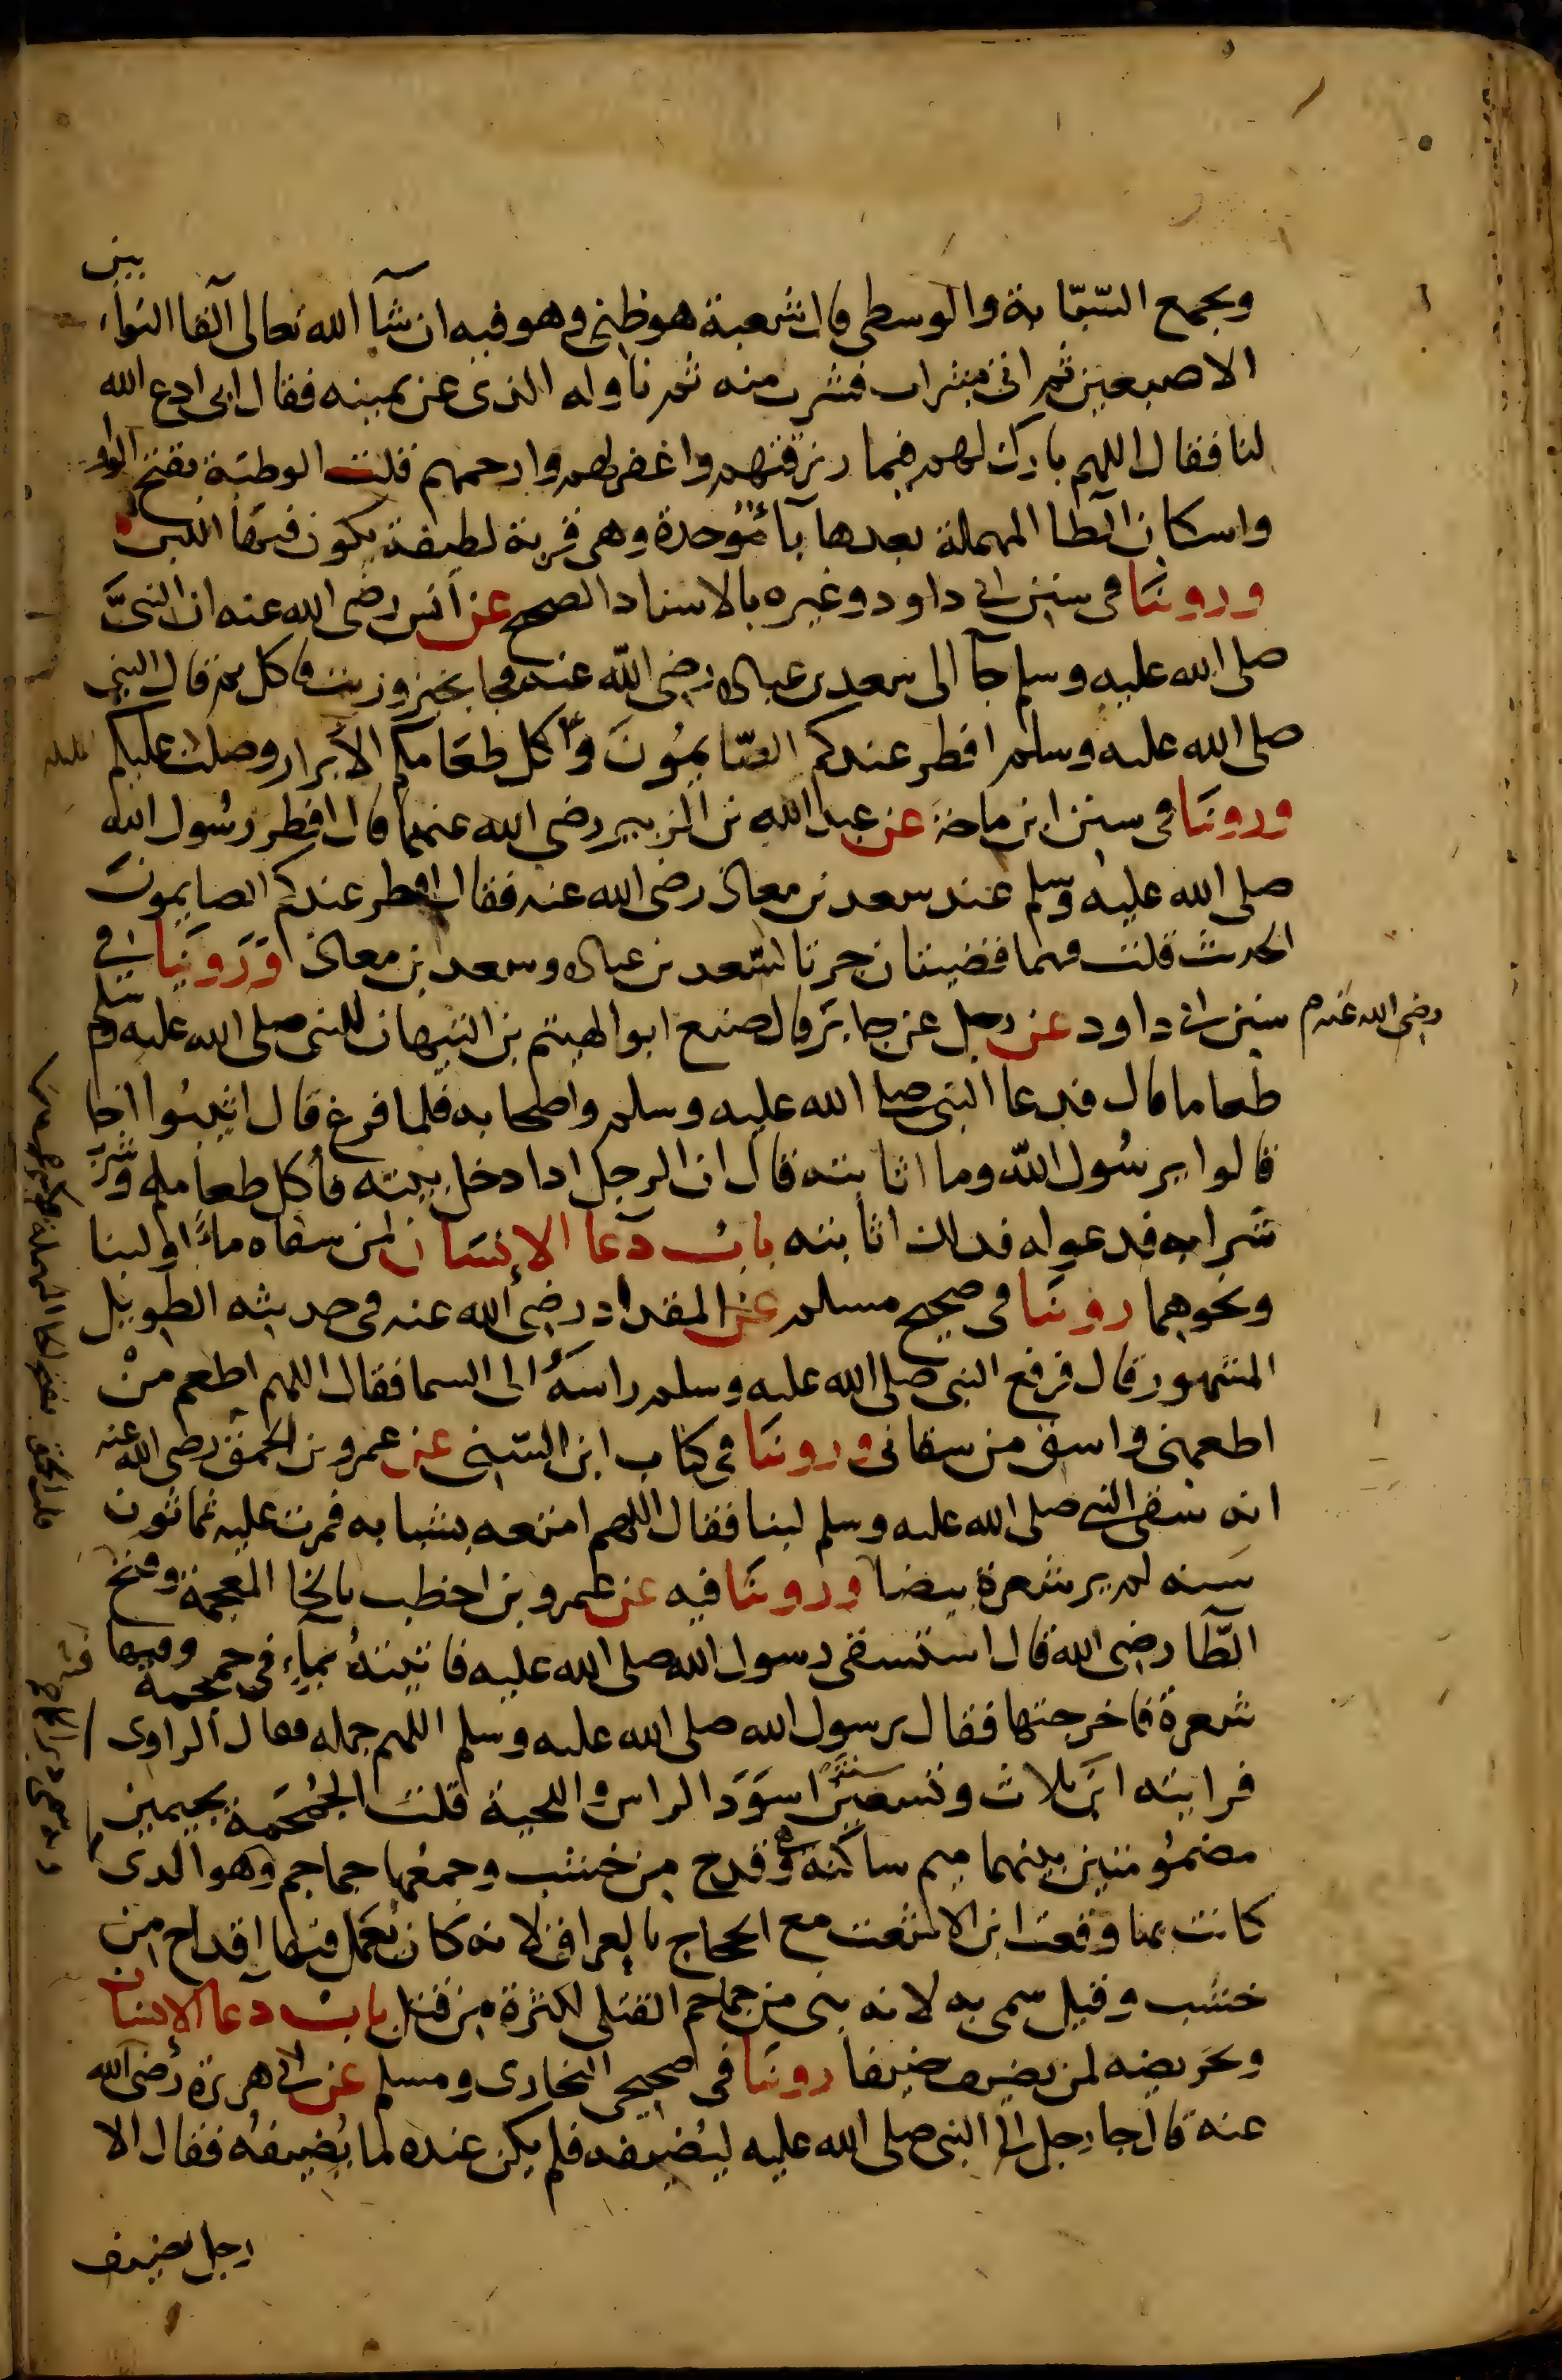 ويجمع السّبّابة والوسطى قال شعبة هو ظني وهو فيه ان شآ الله تعالى القا النواء بين
الاصبعين ثم اتى بشراب فشرب منه ثم ناوله الذى عن يمينه فقال ابى ادع الله
لنا فقال اللهم بارك لهم فيما رزقتهم واغفر لهم وارحمهم قلت الوطبة بفتح الواو
واسكان الطا المهملة بعدها بآ موحدة وهى قربة لطيفة يكون فيها اللبن
وروينا فى سنن ابى داود وغيره بالاسناد الصحيح عن أنس رضى الله عنه ان النبىَّ
صلى الله عليه وسلم جآ الى سعد بن عباده رضى الله عنه فجا بخبز وزيت فاكل ثم قال النبى
صلى الله عليه وسلم افطر عندكم الصّايمُونَ وأكل طعَامكم الأبرار وصلت عليكم الملايكه
وروينا فى سنن ابن ماجة عن عبد الله بن الزبير رضى الله عنهما قال افطر رسُول الله
صلى الله عليه وسلم عند سعد بن معاذ رضى الله عنه فقال افطر عندكم الصايمون
الحديث قلت فهما قضيتان جرتا لسَعد بن عباده وسعد بن معاذ وَرَوينا فى
سنن ابى داود عن رجل عن جابر قال صنع ابو الهيثم بن التيهان للنبى صلى الله عليه وسلم
رضى الله عنهم
طعاما قال فدعا النبى صلى الله عليه وسلم واصحابه فلما فرغ قال اثيبُوا اخاكم
قالوا يرسُول الله وما اثابته قال ان الرجل اذا دخل بيته فأكل طعامه وشرب
شرابه فدعوا له فذلك اثابته بابُ دعآ الإنسَان لمن سقاه ماءً او لبنا
ونحوهما روينا فى صحيح مسلم عن المقداد رضى الله عنه فى حديثه الطويل
المشهور قال فرفع النبى صلى الله عليه وسلم راسهُ الى السما فقال اللهم اطعم منْ
اطعمنى واسق من سقانى وروينا فى كتاب ابن السّنى عن عمرو بن الحمق رضى الله عنه
انه سقى النبى صلى الله عليه وسلم لبنا فقال اللهم امتعه بشبابه فمرت عليه ثمانون
سَنه لم ير شعرة بيضا وروينا فيه عن عمرو بن اخطب بالخا المعجمة وفتح
الطّا رضى الله قال استسقى رسول الله صلى الله عليه فاتيتهُ بمآء فى جمجمة وفيها
شعرة فاخرجتها فقال رسول الله صلى الله عليه وسلم اللهم جمله فقال الراوى
فرايته ابن ثلاث وتسعين سنةً اسوَدَ الراس واللحية قلت الجُمْجَمة بجيمين
مضمُومتين بينهما ميم ساكنة وهى قدح من خشب وجمعُها جماجم وهو الذى
كانت بها وقعت ابن الاشعث مع الحجاج بالعراق لانه كان يُعمل فيها اقداح من
خشب وقيل سمى به لانه بنى من جماجم القتلى لكثرة من قتل بابُ دعآ الإنسان
وتحريضه لمن يضيف ضيفا روينا فى صحيحى البخارى ومسلم عن ابى هريرة رضى الله
عنه قال جا رجل الى النبى صلى الله عليه ليُضيفه فلم يكن عنده لما يُضيفهُ فقال الا
رجل يضيف